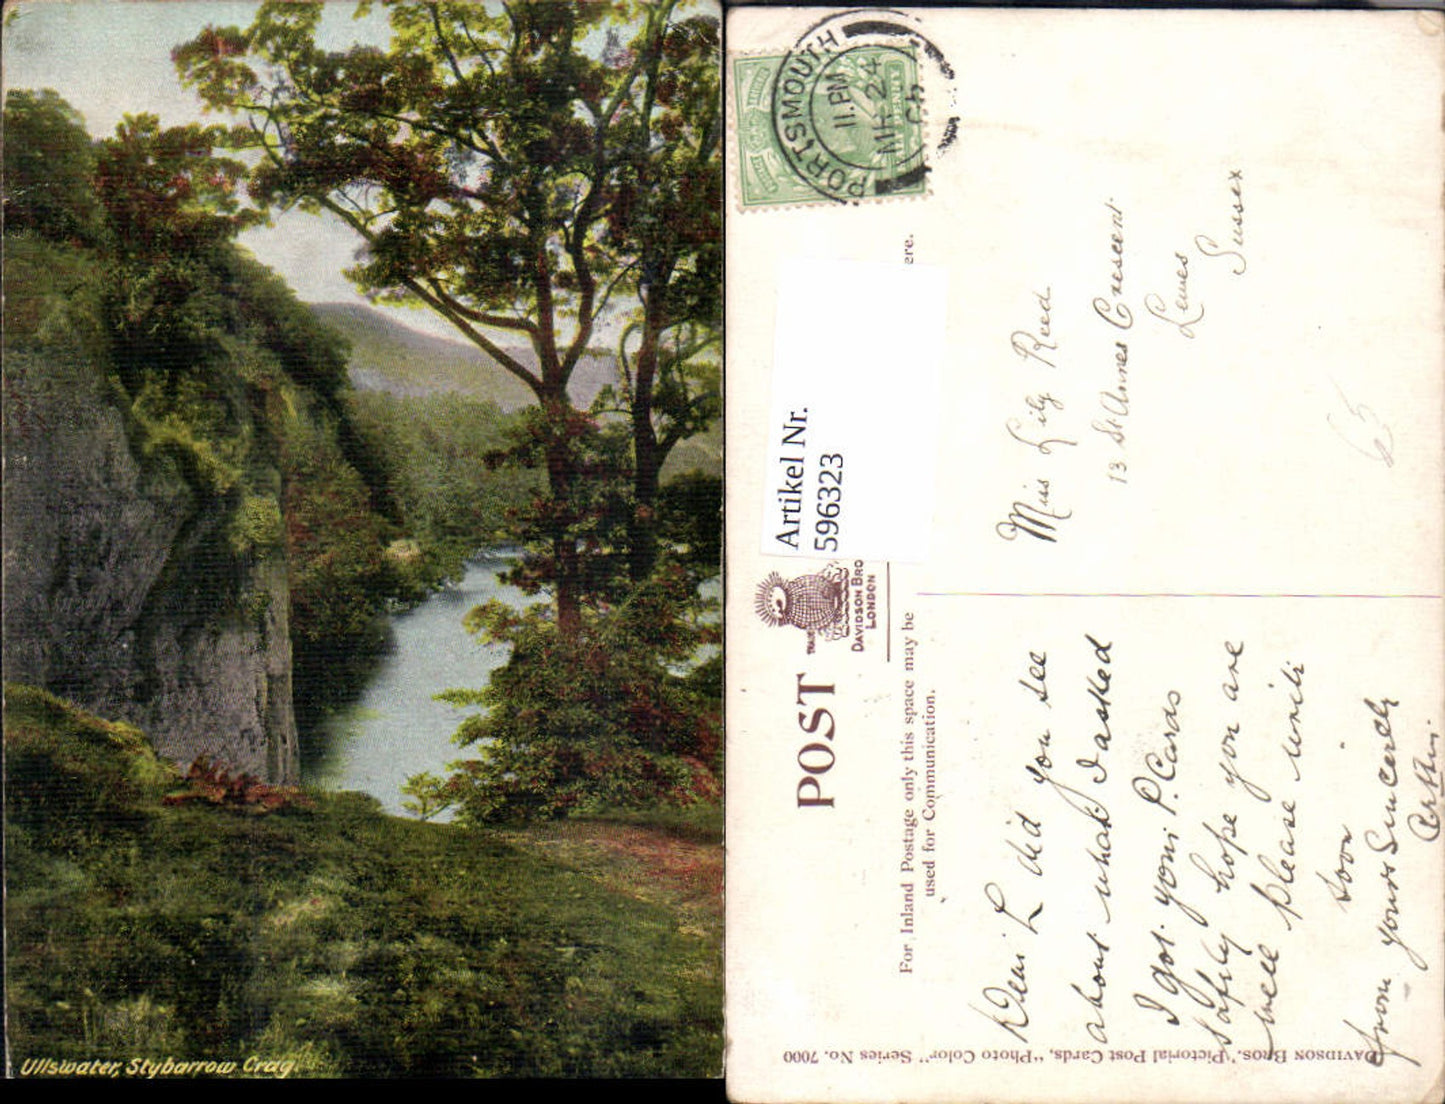 Ullswater, Stybarrow Crag.
PORTSMOUTH
11. PM
MR 24
POST
Artikel Nr.
596323
ere.
TRADE
DAVIDSON BRO
LONDON
For Inland Postage only this space may be
used for Communication.
Miss Lily Reed
13 St Annes Crescent
Lewes
Sussex
65
Dear L did you see
about what I asked
I got your P. Cards
safely hope you are
well please write
soon
from yours Sincerely
DAVIDSON BROS. "Pictorial Post Cards, "Photo Color" Series No. 7000